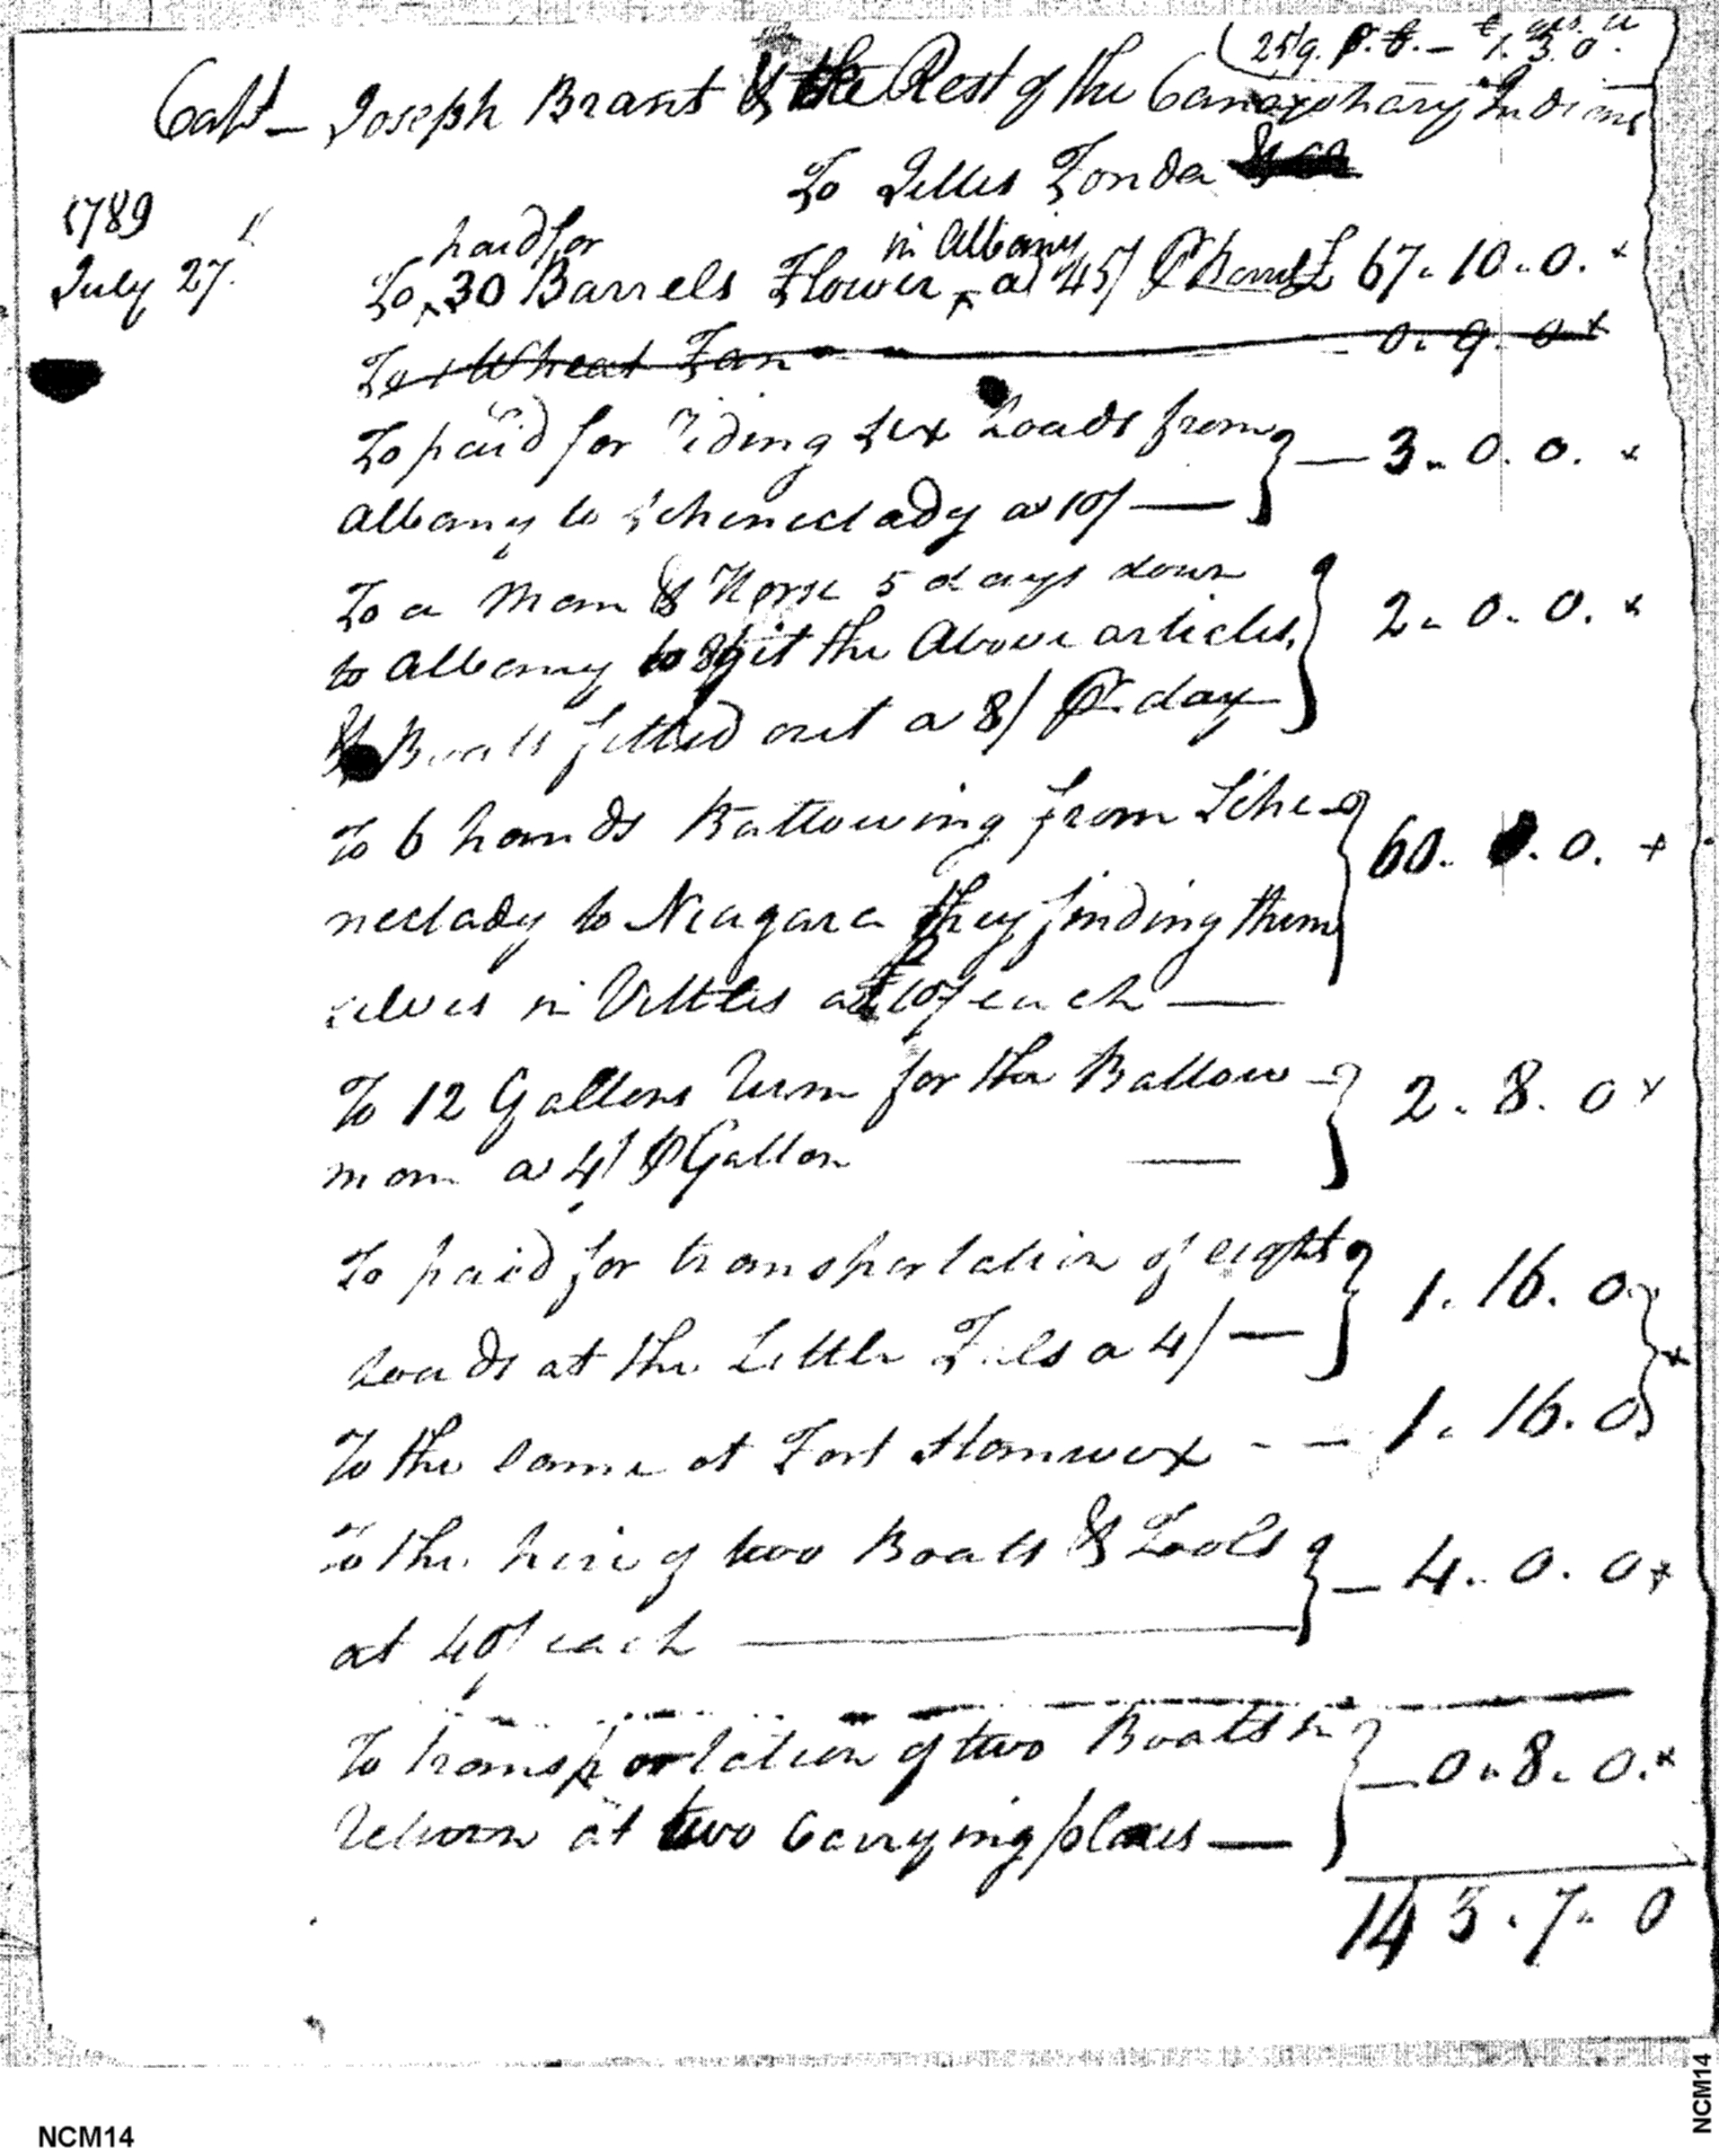 25/9. p. t. — 1. 3. 0.
Capt — Joseph Brant & the Rest of the Canajohary Indians
To Jelles Fonda
1789
July 27.
paid for in Albany
To 30 Barrels Flower a 45/ Pr Barrel £ 67. 10. 0. x
To 1 Wheat Fan — 0. 9. 0 x
To paid for Riding six Loads from
Albany to Schenectady a 10/ — — 3. 0. 0. x
To a man & Horse 5 days down
to Albany to git the Above articles 2. 0. 0. x
& Boats fitted out a 8/ Pr day
To 6 hands Battowing from Sche 60. 0. 0. x
nectady to Niagara they finding them
selves in Vittles at £10/ each —
To 12 Gallons Rum for the Battow 2. 8. 0 x
men a 4/ Pr Gallon —
To paid for transportation of eight 1. 16. 0
Loads at the Little Fals a 4/ — x
To the same at Fort Stanwix - — 1. 16. 0
To the hire of two Boats & Tools — 4. 0. 0 x
at 40/ each —
To transportation of two Boats in — 0. 8. 0. x
Return at two Carrying places —
143. 7. 0
NCM14
NCM14